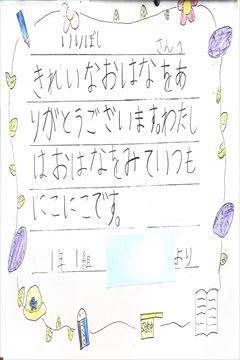 けりぼし さんへ
きれいなおはなをあ
りがとうございます。わたし
はおはなをみていつも
にこにこです。
1年1組 より